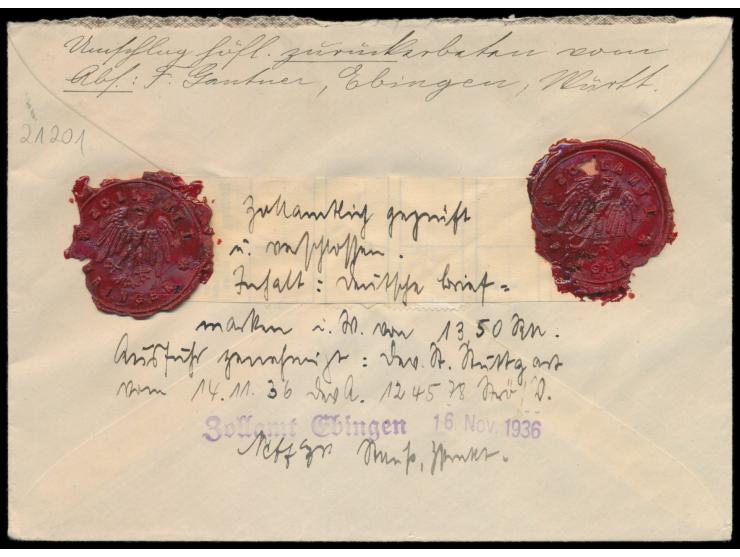 Umschlag höfl. zurückerbeten vom
Abs.: F. Gantner, Ebingen, Württ.
21201
ZOLLAMT I
ZOLLAMT I
Zollamtlich geprüft
u. verschlossen.
Inhalt: deutsche Brief=
marken i. W. von 1350 RM.
Ausfuhr genehmigt: Dev. St. Stuttgart
vom 14. 11. 36 Dev A. 124578
Zollamt Ebingen 16. Nov. 1936